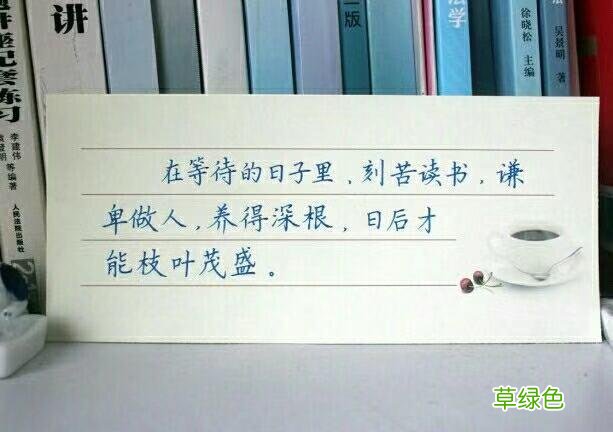 讲
李建伟
等编著
人民法院出版社
二版
法学
徐晓松 主编
吴景明 著
在等待的日子里，刻苦读书，谦
卑做人，养得深根，日后才
能枝叶茂盛。
草绿色